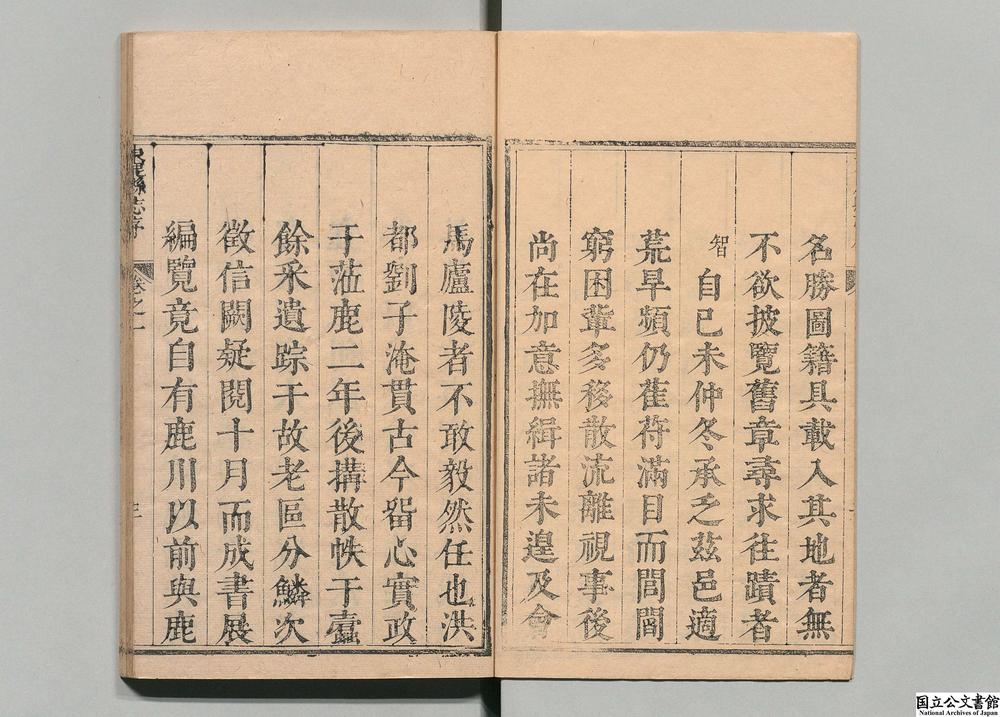 名勝圖籍具載入其地者無
不欲披覽舊章尋求往蹟者
智自已未仲冬承乏茲邑適
荒旱頻仍萑苻滿目而閭閻
窮困輩多移散流離視事後
尚在加意撫緝諸未遑及會
馬廬陵者不敢毅然任也洪
都劉子淹貫古今畱心實政
于蒞鹿二年後搆散帙于蠹
餘采遺踪于故老區分鱗次
徵信闕疑閱十月而成書展
編覽竟自有鹿川以前與鹿
縣志序
卷之一
三
国立公文書館
National Archives of Japan